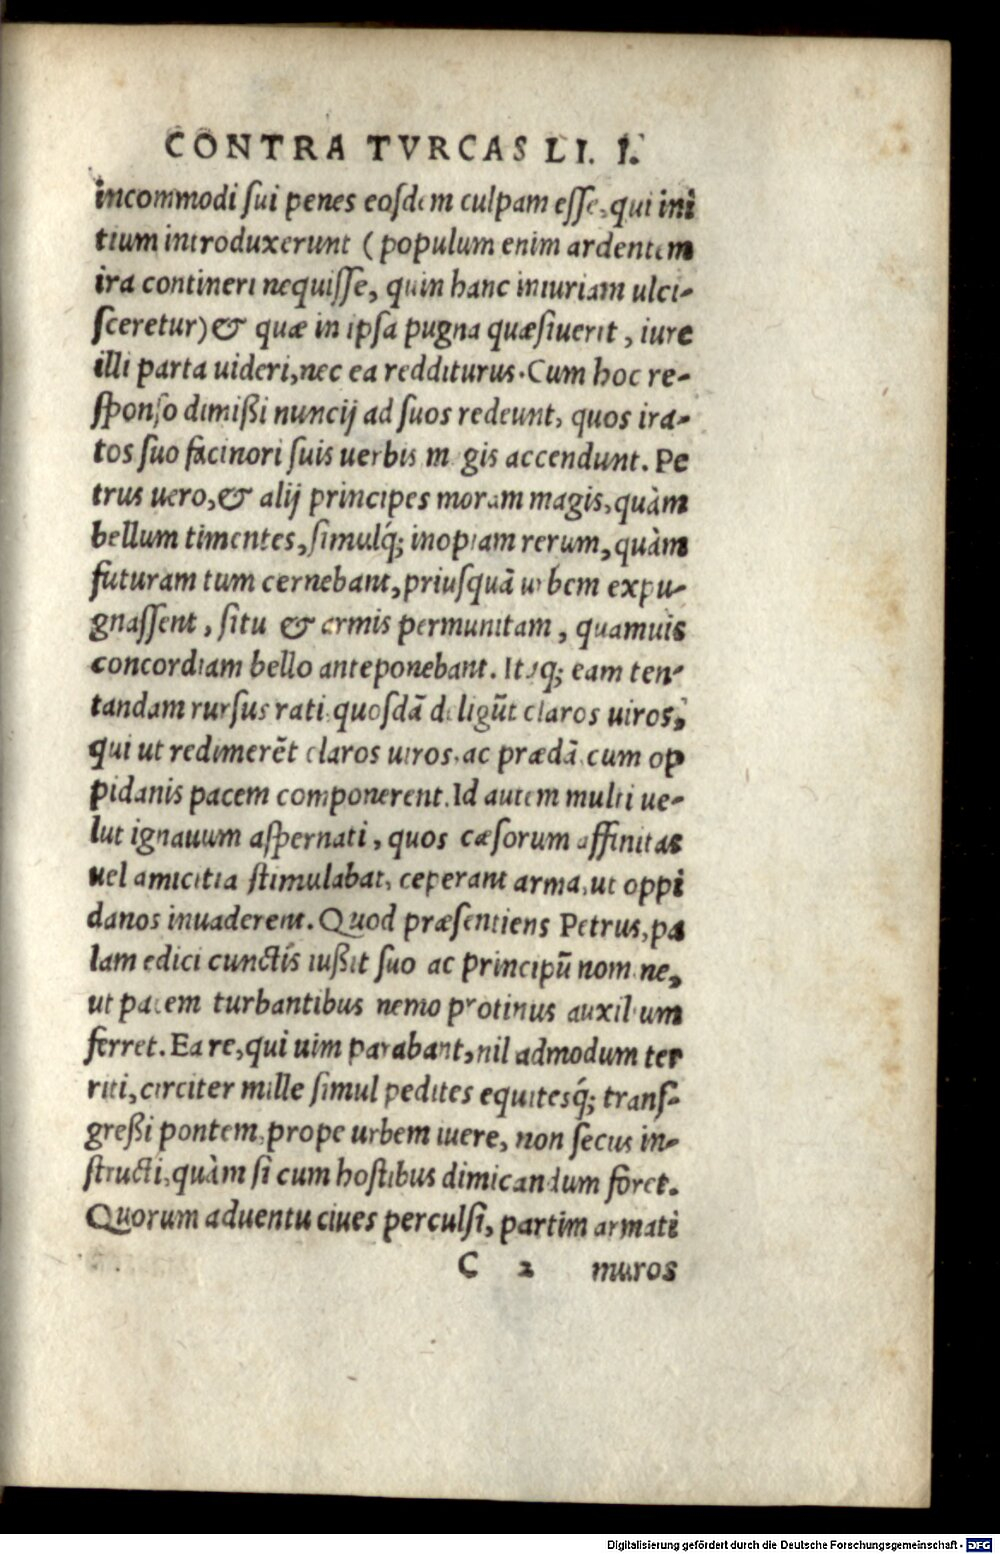 CONTRA TVRCAS LI. I.
incommodi ſui penes eoſdem culpam eſſe, qui ini
tium introduxerunt (populum enim ardentem
ira contineri nequiſſe, quin hanc iniuriam ulci-
ſceretur) & quæ in ipſa pugna quæſiuerit, iure
illi parta uideri, nec ea redditurus. Cum hoc re-
ſponſo dimißi nuncij ad ſuos redeunt, quos ira-
tos ſuo facinori ſuis uerbis m gis accendunt. Pe
trus uero, & alij principes moram magis, quàm
bellum timentes, ſimulq́; inopiam rerum, quàm
futuram tum cernebant, priuſquā urbem expu-
gnaſſent, ſitu & armis permunitam, quamuis
concordiam bello anteponebant. Itaq; eam ten-
tandam rurſus rati quoſdā deligūt claros uiros,
qui ut redimerēt claros uiros. ac prædā cum op
pidanis pacem componerent. Id autem multi ue-
lut ignauum aſpernati, quos cæſorum affinitas
uel amicitia ſtimulabat, ceperant arma, ut oppi
danos inuaderent. Quod præſentiens Petrus, pa
lam edici cunctis iußit ſuo ac principū nomine,
ut pacem turbantibus nemo protinus auxilium
ferret. Ea re, qui uim parabant, nil admodum ter
riti, circiter mille ſimul pedites equitesq́; tranſ-
greßi pontem, prope urbem iuere, non ſecus in-
ſtructi, quàm ſi cum hoſtibus dimicandum foret.
Quorum aduentu ciues perculſi, partim armati
C 2 muros
Digitalisierung gefördert durch die Deutsche Forschungsgemeinschaft - DFG